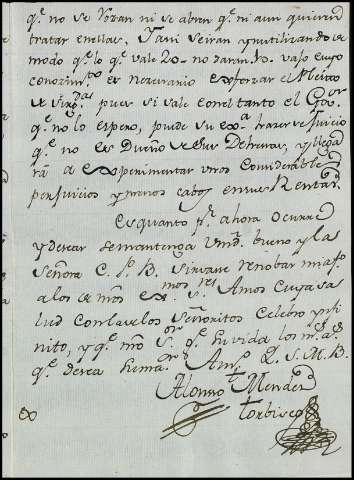 qe. no se rozan ni se abran qe. ni aun quieren
tratar en ellas, y asi se iran ynutilizando de
modo qe. lo qe. vale 20. no daran ro. vajo cuyo
conozimto. es nezesario esforzar el
pues si vale con el tanto el Gov.or
qe. no lo espero, puede Vu exa. hazer
qe. no es Dueño de sus Dehesas, y llega
rá a experimentar unos considerables
perjuicios y menos cabos en sus Rentas.
Es quanto pr. ahora ocurre
y desear se mantenga Vmd. bueno y la
Señora C. P. B. sirvase renobar mi afto.
a los mos. Amos cuya sa
lud con la de los Señoritos celebro ynfi
nito, y qe. nro Sor. gue. su vida los ms. as.
qe. desea su mar. Amo. Q. S. M. B.
Alonso Mendez
Torbisco